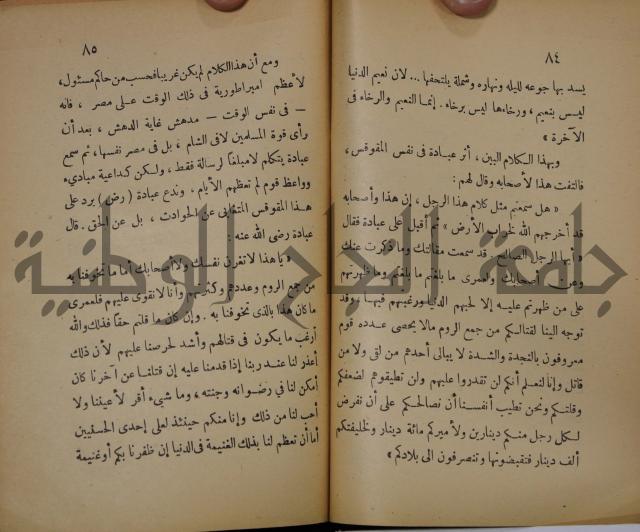 ٨٤
يسد بها جوعه لليله ونهاره وشملة يلتحفها ... لان نعيم الدنيا
ليس بنعيم ، ورخاءها ليس برخاء . إنما النعيم والرخاء فى
الآخرة »
وبهذا الكلام البين ، أثر عبادة فى نفس المقوقس ،
فالتفت هذا لأصحابه وقال لهم :
« هل سمعتم مثل كلام هذا الرجل ، إن هذا وأصحابه
قد أخرجهم الله لخراب الأرض » ثم أقبل على عبادة فقال
« أيها الرجل الصالح قد سمعت مقالتك وما ذكرت عنك
وعن أصحابك ولعمرى ما بلغتم ما بلغتم وما ظهرتم
على من ظهرتم عليه إلا لحبهم الدنيا ورغبتهم فيها ، وقد
توجه الينا لقتالكم من جمع الروم مالا يحصى عدده قوم
معروفون بالنجدة والشدة لا يبالى أحدهم من لقى ولا من
قاتل وإنا لنعلم أنكم لن تقدروا عليهم ولن تطيقوهم لضعفكم
وقلتكم ونحن تطيب أنفسنا أن نصالحكم على أن نفرض
لكل رجل منكم دينارين ولأميركم مائة دينار ولخليفتكم
ألف دينار فتقبضونها وتنصرفون الى بلادكم »
٨٥
ومع أن هذا الكلام لم يكن غريبا فحسب من حاكم مسئول ،
لأعظم امبراطورية فى ذلك الوقت على مصر ، فانه
— فى نفس الوقت — مدهش غاية الدهش ، بعد أن
رأى قوة المسلمين لا فى الشام ، بل فى مصر نفسها ، ثم سمع
عبادة يتكلم لا مبلغا لرسالة فقط ، ولكن كداعية مبادىء
وواعظ قوم لم تعظهم الأيام ، وندع عبادة ( رض ) يرد على
هذا المقوقس المتغابى عن الحوادث ، بل عن الحق . قال
عبادة رضى الله عنه :
« يا هذا لا تغرن نفسك ولا أصحابك أما ما تخوفنا به
من جمع الروم وعددهم وكثرتهم وأنا لا نقوى عليهم فلعمرى
ما كان هذا بالذى تخوفنا به . وإن كان ما قلتم حقا فذلك والله
أرغب ما يكون فى قتالهم وأشد لحرصنا عليهم لأن ذلك
أعذر لنا عند ربنا إذا قدمنا عليه إن قتلنا عن آخرنا كان
أمكن لنا فى رضوانه وجنته ، وما شىء أقر لأعيننا ولا
أحب لنا من ذلك وإنا منكم حينئذ لعلى إحدى الحسنيين
أما أن تعظم لنا بذلك الغنيمة فى الدنيا إن ظفرنا بكم أو غنيمة
جامعة النجاح الوطنية